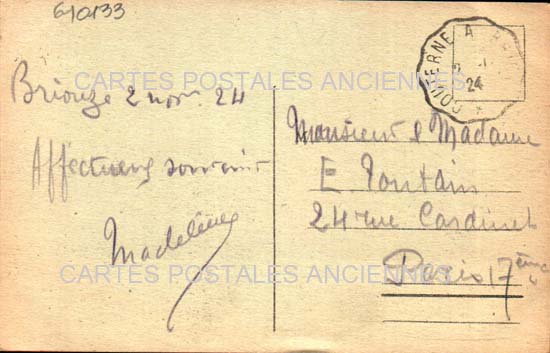 610133
COUTERNE A
24
CARTES POSTALES ANCIENNES
Briouze 2 nov. 24
Affectueux souvenir
Madeleine
Monsieur & Madame
E Toutain
24 rue Cardinet
Paris 17ème
CARTES POSTALES ANCIENNES